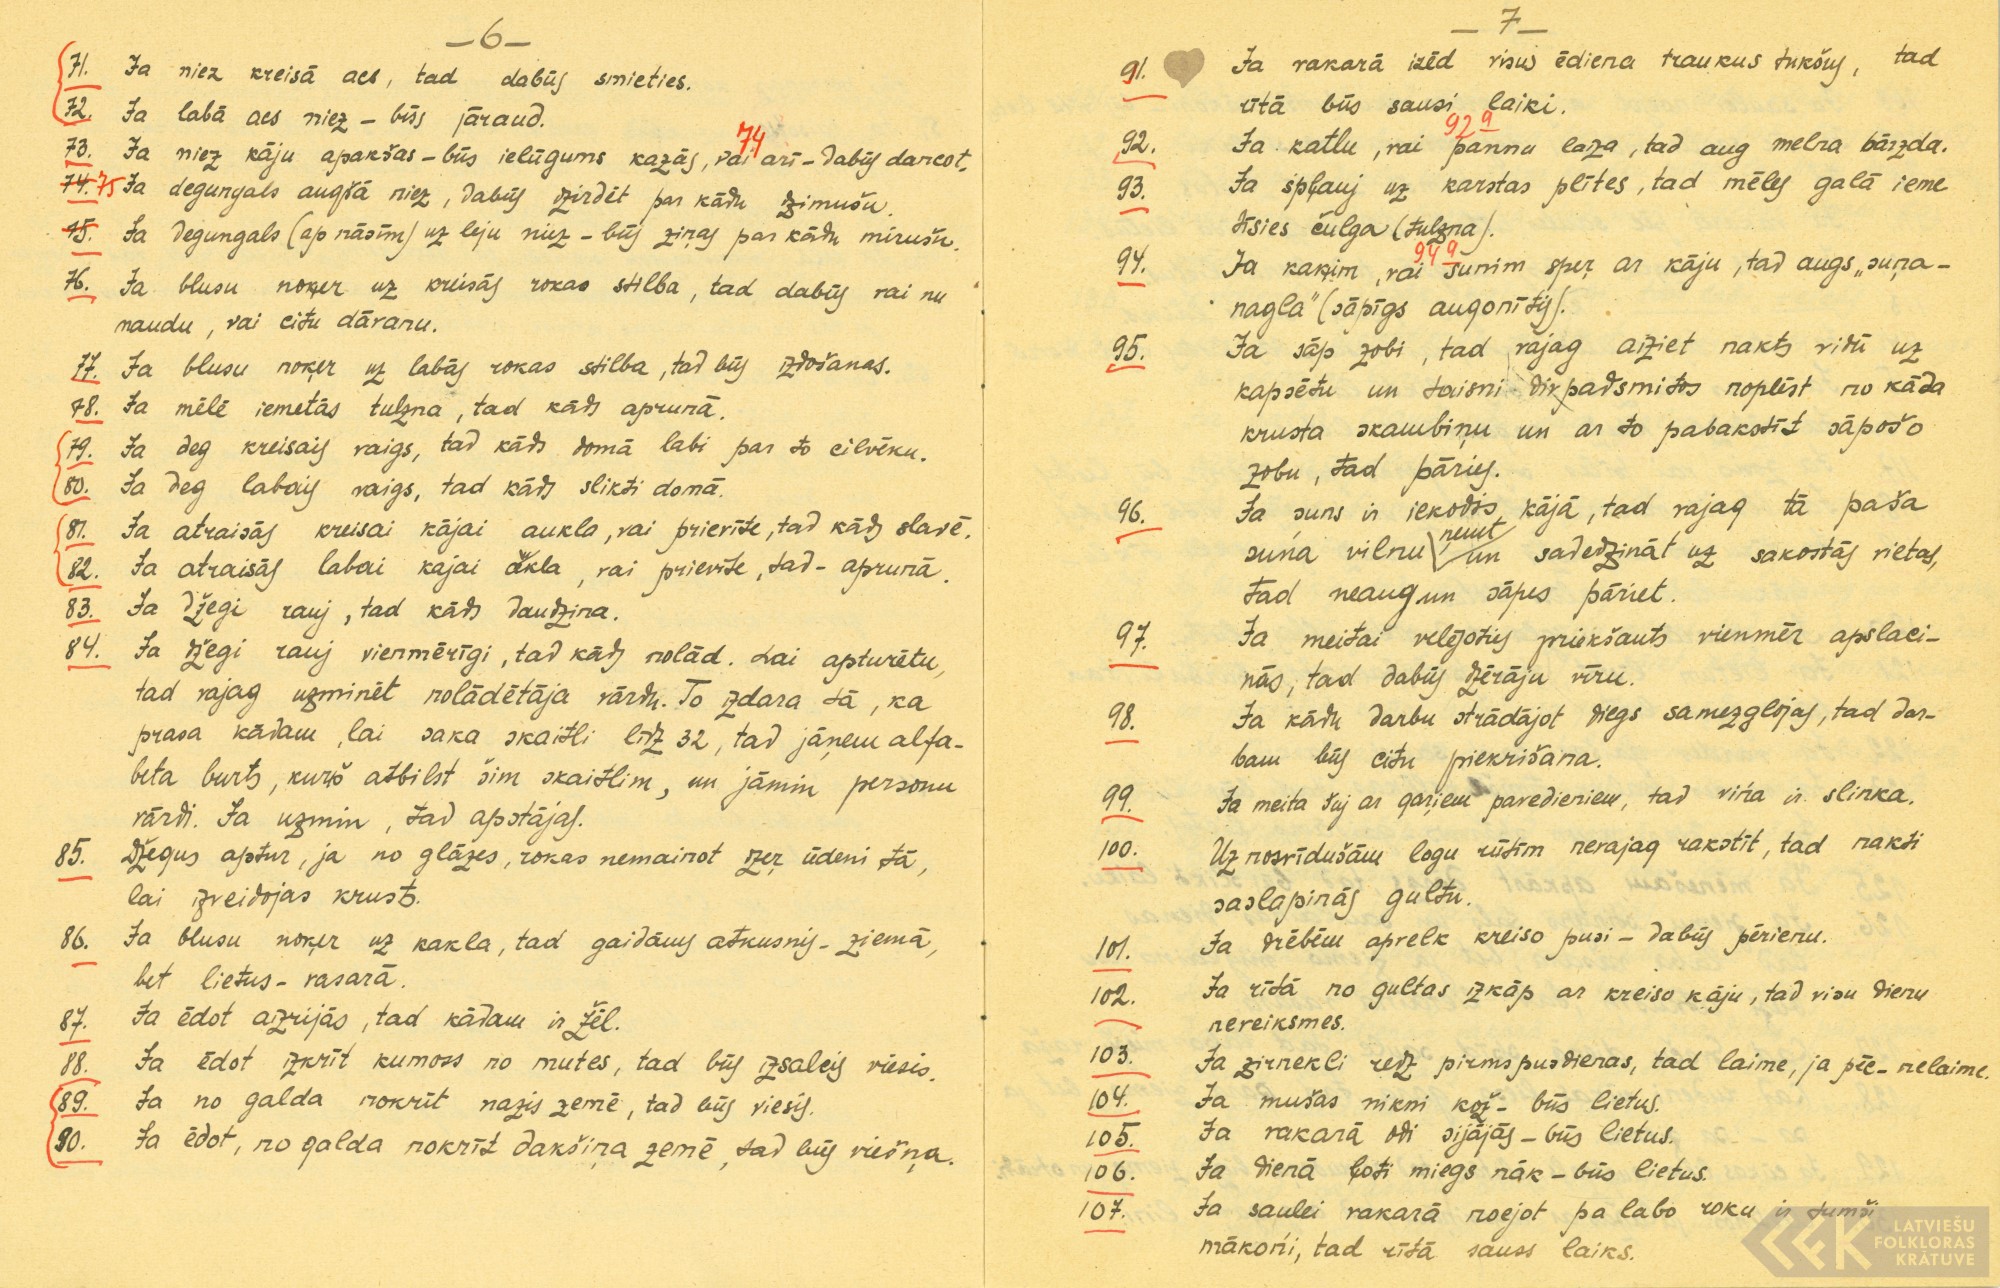 – 6 –
71. Ja niez kreisā acs, tad dabūs smieties.
72. Ja labā acs niez – būs jāraud.
74
73. Ja niez kāju apakšas – būs ielūgums kazās, vai arī – dabūs dancot.
74. 75 Ja degungals augšā niez, dabūs dzirdēt par kādu dzimušu.
75. Ja degungals (ap nāsīm) uz leju niez – būs ziņas par kādu mirušu.
76. Ja blusu noķer uz kreisās rokas stilba, tad dabūs vai nu
naudu, vai citu dāvanu.
77. Ja blusu noķer uz labās rokas stilba, tad būs izdošanas.
78. Ja mēlē iemetās tulzna, tad kāds aprunā.
79. Ja deg kreisais vaigs, tad kāds domā labi par to cilvēku.
80. Ja deg labais vaigs, tad kāds slikti domā.
81. Ja atraisās kreisai kājai aukla, vai prievīte, tad kāds slavē.
82. Ja atraisās labai kājai aukla, vai prievīte, tad – aprunā.
83. Ja džegi rauj, tad kāds daudzina.
84. Ja džegi rauj vienmērīgi, tad kāds nolād. Lai apturētu,
tad vajag uzminēt nolādētāja vārdu. To izdara tā, ka
prasa kādam, lai saka skaitli līdz 32, tad jāņem alfa-
beta burts, kurš atbilst šim skaitlim, un jāmin personu
vārdi. Ja uzmin, tad apstājas.
85. Džegus aptur, ja no glāzes, rokas nemainot dzeŗ ūdeni tā,
lai izveidojas krusts.
86. Ja blusu noķer uz kakla, tad gaidāms atkusnis – ziemā,
bet lietus – vasarā.
87. Ja ēdot aizrijās, tad kādam ir žēl.
88. Ja ēdot izkrīt kumoss no mutes, tad būs izsalcis viesis.
89. Ja no galda nokrīt nazis zemē, tad būs viesis.
90. Ja ēdot, no galda nokrīt dakšiņa zemē, tad būs viešņa.
– 7 –
91. Ja vakarā izēd visus ēdiena traukus tukšus, tad
rītā būs sausi laiki.
92 9
92. Ja katlu, vai pannu laza, tad aug melna bārzda.
93. Ja spļauj uz karstas plītes, tad mēles galā ieme
tīsies čulga (tulzna).
94 9
94. Ja kaķim, vai sunim speŗ ar kāju, tad augs „suņa-
nagla" (sāpīgs augonītis).
95. Ja sāp zobi, tad vajag aiziet nakts vidū uz
kapsētu un taisni divpadsmitos noplēst no kāda
krusta skambiņu un ar to pabakstīt sāpošo
zobu, tad pāries.
96. Ja suns ir iekodis kājā, tad vajag tā paša
suņa vilnu ņemt un sadedzināt uz sakostās vietas,
tad neaug un sāpes pāriet.
97. Ja meitai velējoties priekšauts vienmēr apslaci-
nās, tad dabūs dzērāju vīru.
98. Ja kādu darbu strādājot diegs samezglojas, tad dar-
bam būs citu piekrišana.
99. Ja meita šuj ar gaŗiem pavedieniem, tad viņa ir slinka.
100. Uz nosvīdušām logu rūtīm nevajag rakstīt, tad nakti
saslapinās gultu.
101. Ja drēbēm apvelk kreiso pusi – dabūs pērienu.
102. Ja rītā no gultas izkāp ar kreiso kāju, tad visu dienu
nereiksmes.
103. Ja zirnekli redz pirms pusdienas, tad laime, ja pēc – nelaime.
104. Ja mušas nikni kož – būs lietus.
105. Ja vakarā odi sijājās – būs lietus.
106. Ja dienā ļoti miegs nāk – būs lietus.
107. Ja saulei vakarā noejot pa labo roku ir tumši
mākoņi, tad rītā sauss laiks.
LATVIEŠU
FOLKLORAS
KRĀTUVE